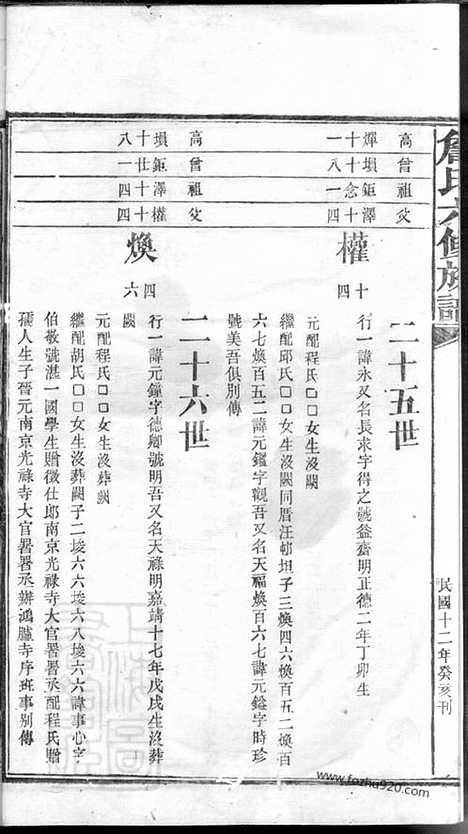 詹氏六修族譜
民國十二年癸亥刊
高 曾 祖 父
煇十一 塤念八 鉅十一 澤十四
權 十四
二十五世
行一諱永又名長求字得之號益齋明正德二年丁卯生
元配程氏□□女生沒闕
繼配邱氏□□女生沒闕同厝汪邨坦子三煥四六煥百五二煥百
六七煥百五二諱元鑑字觀吾又名天福煥百六七諱元鎰字時珍
號美吾俱別傳
高 曾 祖 父
塤十八 鉅廿一 澤十四 權十四
煥 四六
二十六世
行一諱元鐘字德卿號明吾又名天祿明嘉靖十七年戊戌生沒葬
闕
元配程氏□□女生沒葬闕
繼配胡氏□□女生沒葬闕子二埈六六埈六八埈六六諱事心字
伯敬號湛一國學生贈徵仕郎南京光祿寺大官署署丞配程氏贈
孺人生子晉元南京光祿寺大官署署丞辦鴻臚寺序班事別傳
www.fozhu920.com